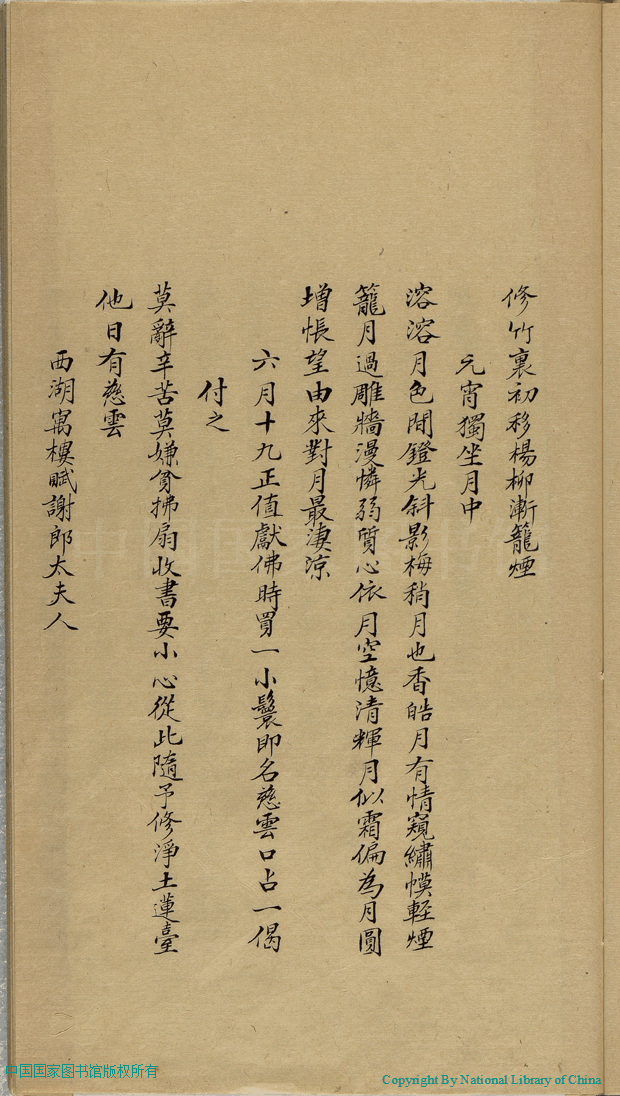 修竹裏初移楊柳漸籠煙
元宵獨坐月中
溶溶月色閒鐙光斜影梅稍月也香皓月有情窺繡幙輕煙
籠月過雕牆漫憐弱質心依月空憶清輝月似霜偏為月圓
增悵望由來對月最淒涼
六月十九正值獻佛時買一小鬟即名慈雲口占一偈
付之
莫辭辛苦莫嫌貧拂扇收書要小心從此隨予修淨土蓮臺
他日有慈雲
西湖寓樓賦謝郎太夫人
中国国家图书馆版权所有
Copyright By National Library of China